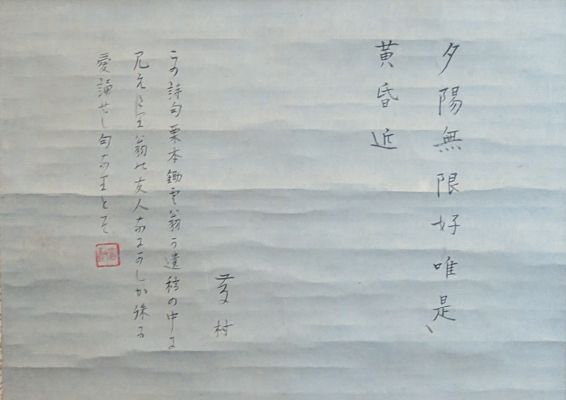 夕陽無限好唯是、
黄昏近
藤村
この詩句栗本鋤雲翁か遺稿の中に
見え 翁の友人なにかしか殊に
愛誦せし句なりとそ